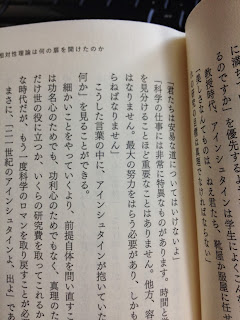 相対性理論は何の扉を開けたのか
に満ち
を優先する
教授時代、アインシュタインは学生によくこん
美しさなんてものは、ねえ君たち、靴屋か服屋に任せ
でなければならない」
「君たちは安易な道についてはいけないよ」
「科学の仕事には非常に特異なものがあります。時間と
を見分けることほど重要なことはありません。他方、容
はなりません。最大の努力をはらう必要があり、しかも
らねばなりません」
こうした言葉の中に、アインシュタインが抱いていた
何か」を見ることができる。
細かいことをやっていくより、前提自体を問い直すこ
は功名心のためでも、功利心のためでもなく、真理のた
だけ世の役に立つか、いくらの研究費を取ってこれるか
な時代だが、もう一度科学のロマンを取り戻すことが必
まさに、「二一世紀のアインシュタインよ、出よ」であ